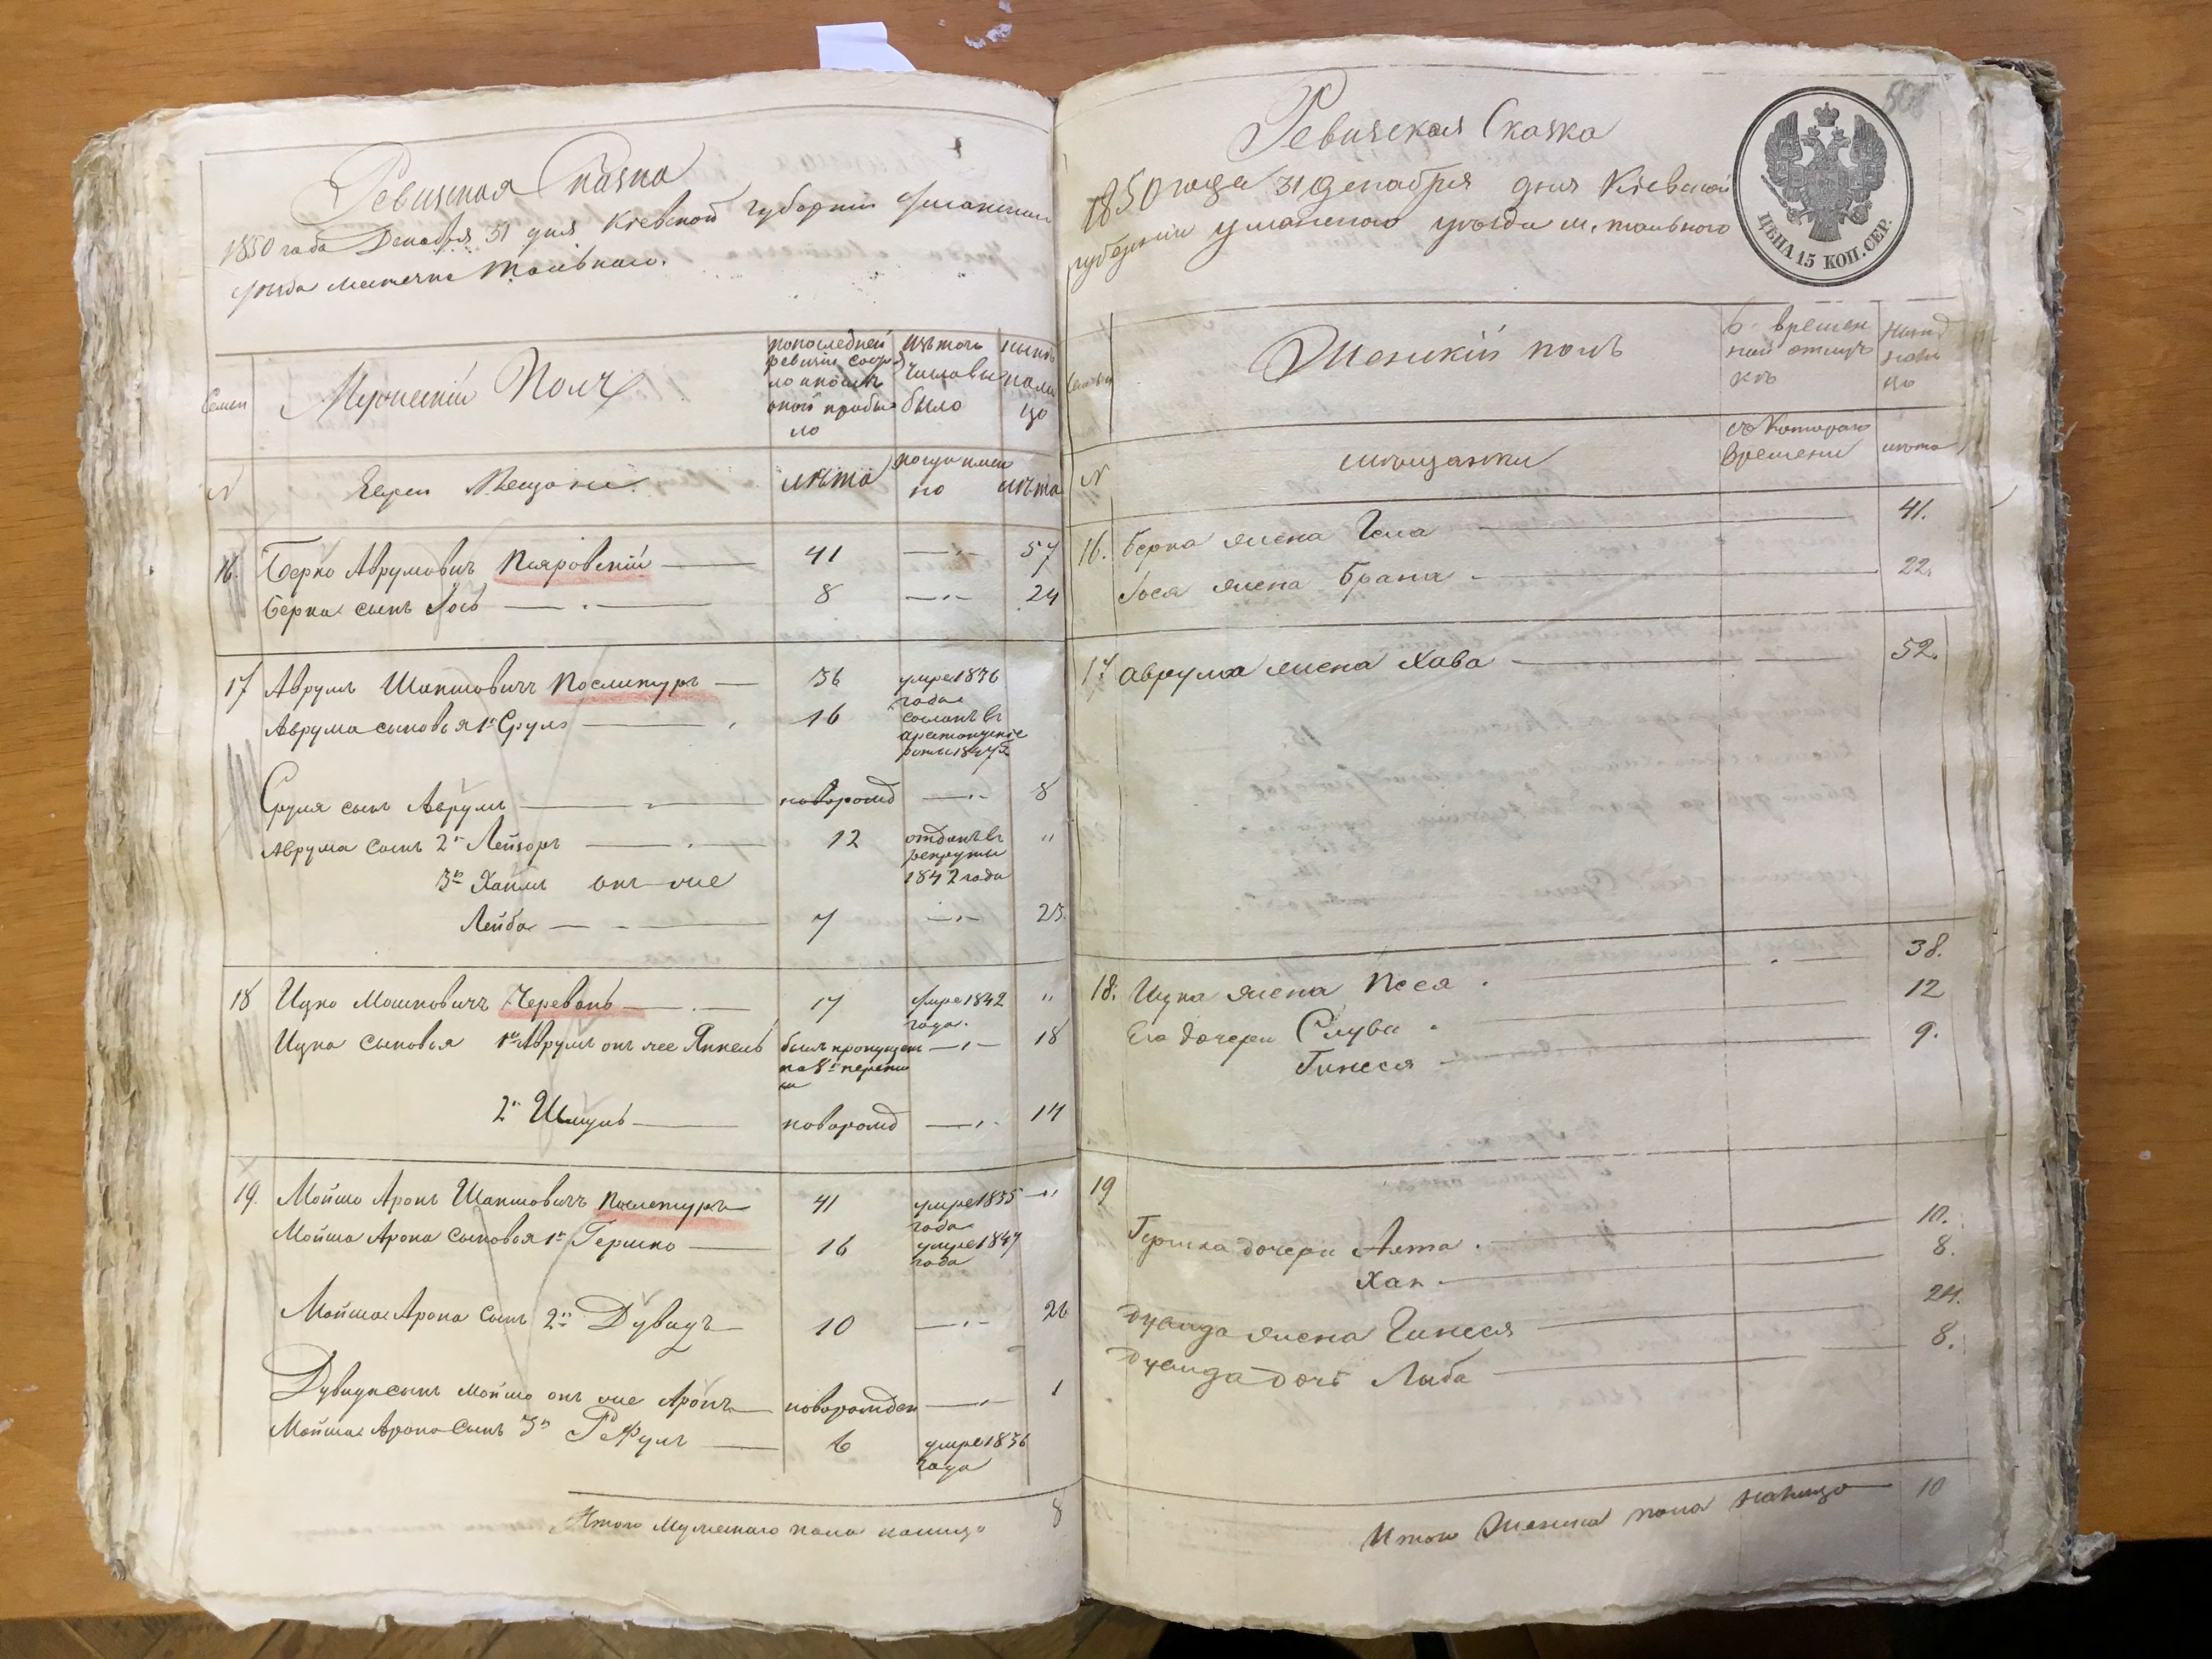 Ревизская Сказка
1850 года Декабря 31 дня Кіевской губерніи Уманскаго
уѣзда местечка Тальнаго.
Семьи
Мужескій Полъ
по последней
ревизіи состоя
ло и после
оной прибы
ло
Изъ того
числа вы
было
Ныне
нали
цо
N
Евреи Мещане.
лѣта
когда имен
но
лѣта
16. Берко Аврумовичъ 41 57
Берка сынъ Іось 8 24
17 Аврумъ Шапшовичъ Послитуръ 36 умре 1836
года
Аврума сыновья 1й Сруль 16 сосланъ въ
арестанскіе
роты 1847 г.
Сруля сынъ Аврумъ новорожд 8
Аврума сынъ 2й Лейзоръ 12 отданъ въ "
рекруты
1842 года
3й Хаимъ онъ же
Лейба 7 23.
18 Ицко Мошковичъ Черевань 17 Умре 1842 "
года.
Ицка сыновья 1й Аврумъ онъ же Янкель былъ пропущен 18
по 8й перепи
си
2й Шмуль новорожд 14
19. Мойше Аронъ Шапшовичъ Послитуръ 41 умре 1835 "
года
Мойша Арона сыновья 1й Гершко 16 умре 1847
года
Мойша Арона Сынъ 2й Дувидъ 10 26
Дувида сынъ Мойше онъ же Аронъ новорожден 1
Мойша Арона Сынъ 3й Рефулъ 6 умре 1836
года
Итого Мужескаго пола налицо 8
Ревизская Сказка
1850 года 31 декабря дня Кіевской
губерніи Уманского уѣзда м. Тального
ЦѢНА 15 КОП. СЕР.
Семьи
Женскій полъ
въ времен
ной отлуч
кѣ
ныне
нали
цо
N
мѣщанки
съ Котораго
времени
лѣта
16. Берка жена Геля 41.
Іося жена Брана 22.
17 Аврума жена Хава 52.
18. Ицка жена Песя 38.
Его дочери Слува 12
Гинеся 9.
19
Гершка дочери Алта 10.
Хая 8.
Дувида жена Гинеся 24.
Дувида дочь Либа 8.
Итого Женска пола налицо 10